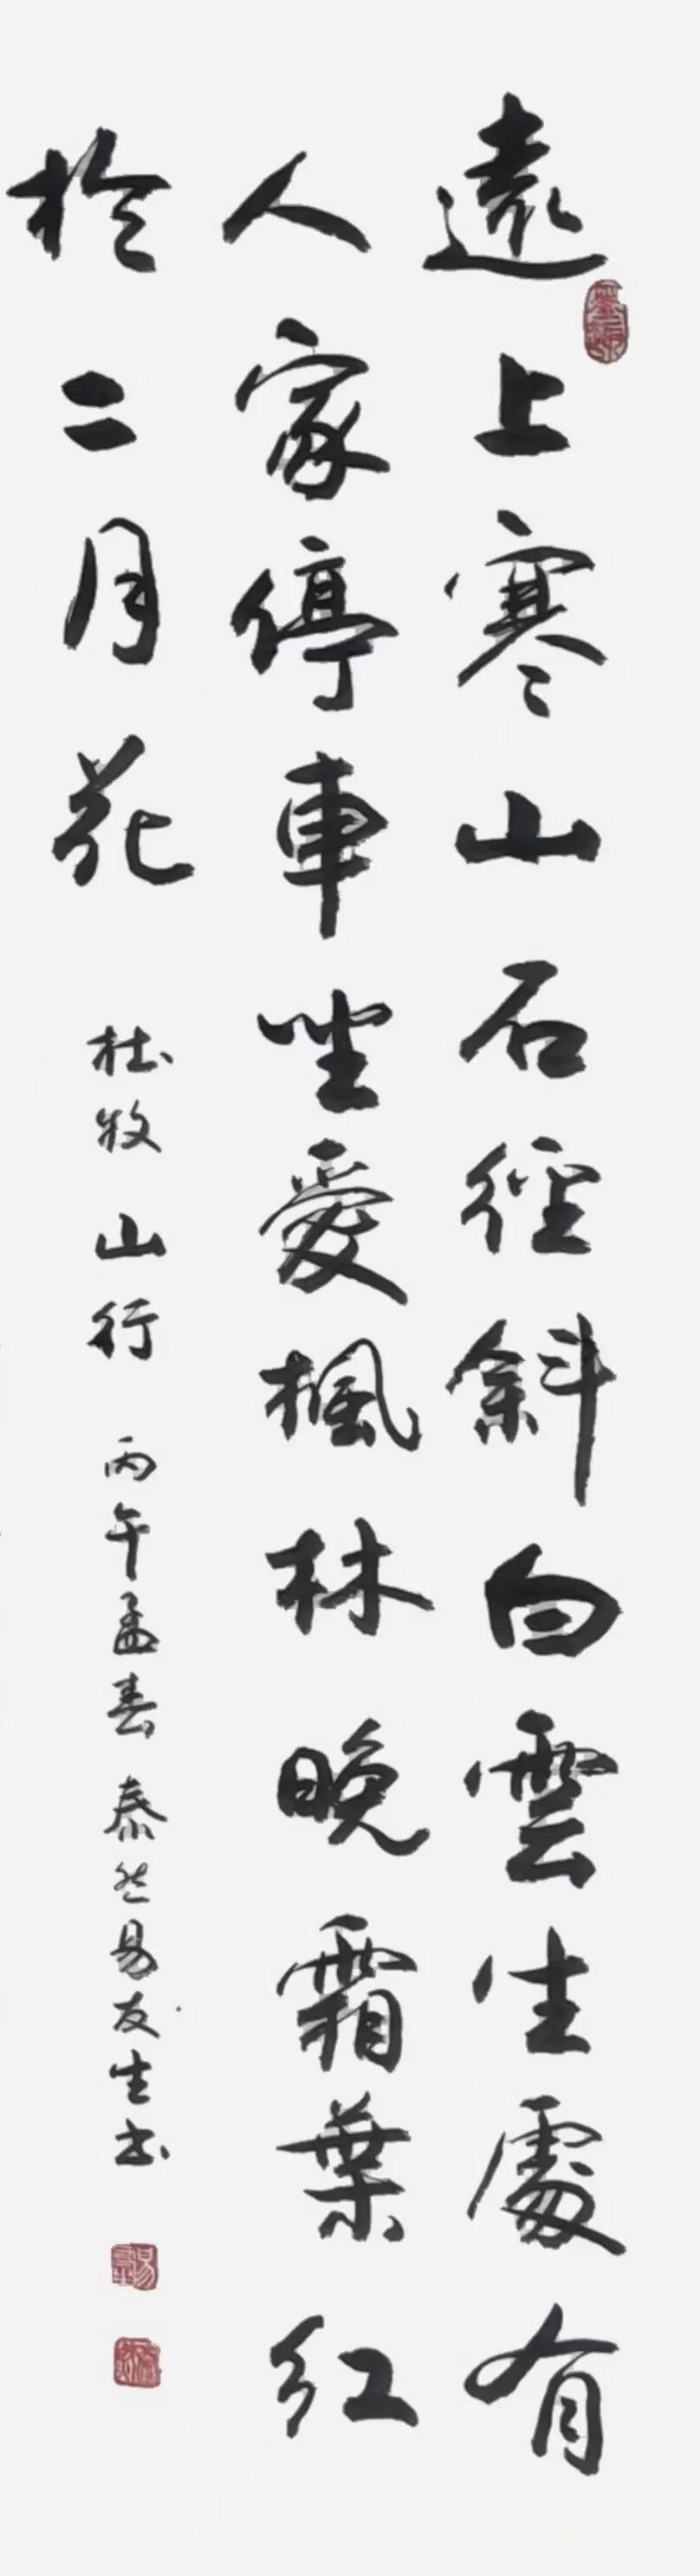 遠上寒山石徑斜白雲生處有
人家停車坐愛楓林晚霜葉紅
於二月花
杜牧 山行 丙午孟春 泰然易友生书